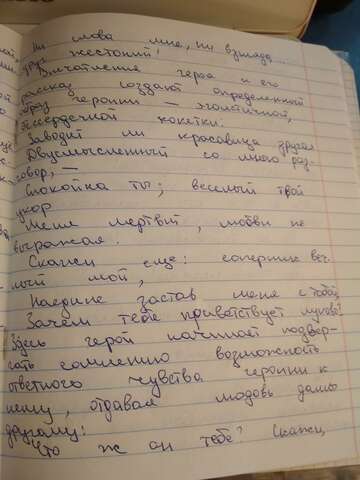 Ни слова мне, ни взгляда...
друг жестокий!
Впечатление героя и его
рассказ создают определенный
образ героини — эгоистичной,
бессердечной кокетки.
Заводит ли красавица другая
Двусмысленный со мною раз-
говор, —
Спокойна ты; веселый твой
укор
Меня мертвит, любви не
выражая.
Скажи еще: соперник веч-
ный мой,
Наедине застав меня с тобой,
Зачем тебя приветствует лукаво?
Здесь герой начинает подвер-
гать сомнению возможность
ответного чувства героини к
нему, отдавая любовь
другому:
Что ж он тебе? Скажи,